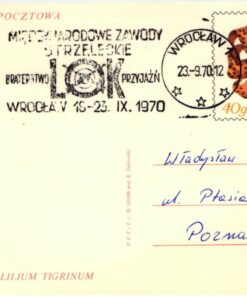 POCZTOWA
MIĘDZYNARODOWE ZAWODY
STRZELECKIE
BRATERSTWO LOK PRZYJAŹŃ
WROCŁAW 16-23. IX. 1970
WROCŁAW
23.-9.70.12
40g
Władysław
ul. Ptasia
Pozna
LILIUM TIGRINUM